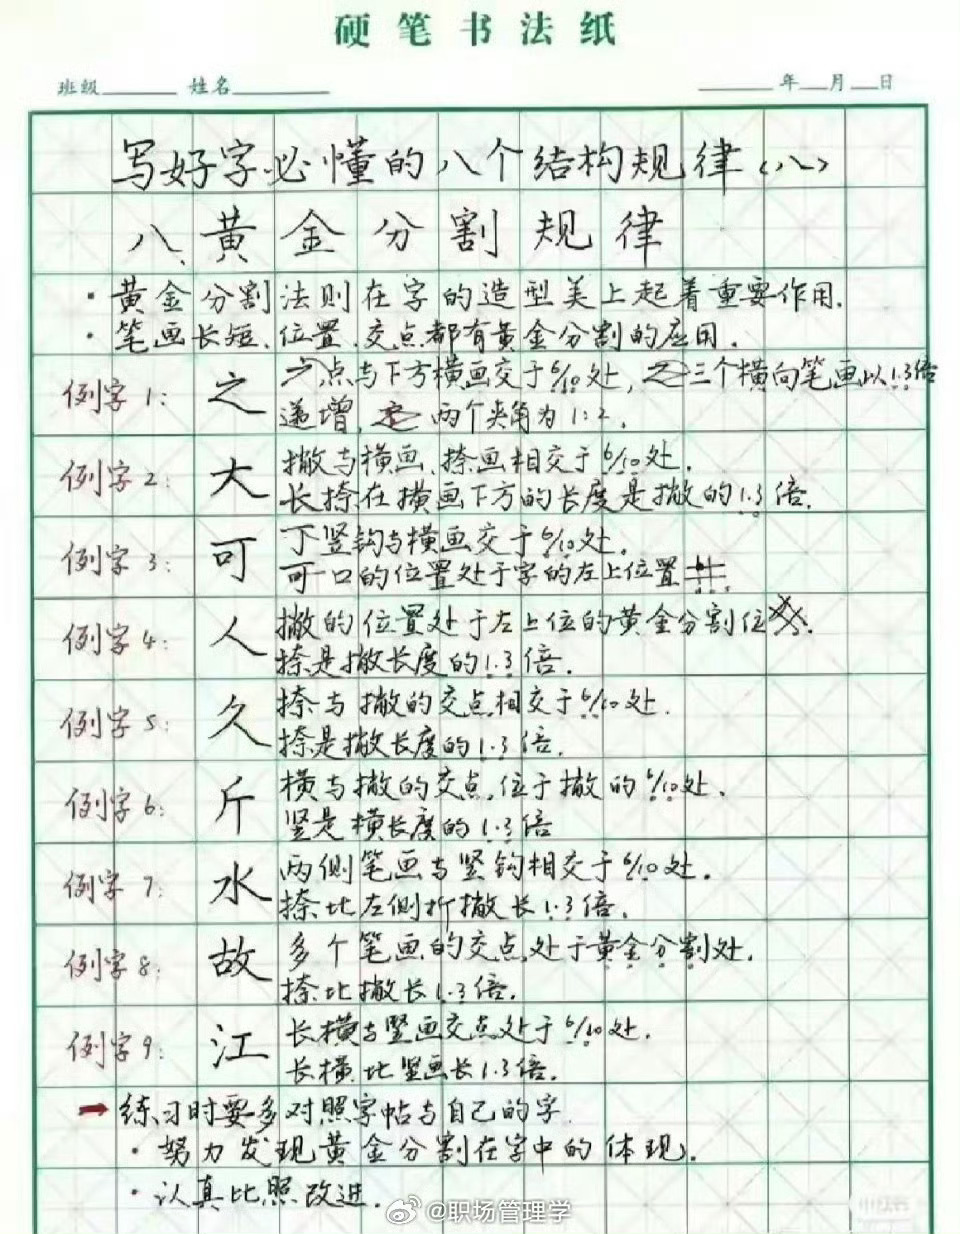 硬笔书法纸
班级______ 姓名______ ______年__月__日
写好字必懂的八个结构规律(八)
八、黄金分割规律
·黄金分割法则在字的造型美上起着重要作用.
·笔画长短、位置、交点都有黄金分割的应用.
例字1: 之 之点与下方横画交于6/10处, 之三个横向笔画以1.3倍
递增, 之 两个夹角为1:2.
例字2: 大 撇与横画、捺画相交于6/10处.
长捺在横画下方的长度是撇的1.3倍.
例字3: 可 丁竖钩与横画交于6/10处.
可口的位置处于字的左上位置
例字4: 人 撇的位置处于左上位的黄金分割位
捺是撇长度的1.3倍.
例字5: 久 捺与撇的交点相交于6/10处.
捺是撇长度的1.3倍.
例字6: 斤 横与撇的交点,位于撇的6/10处.
竖是横长度的1.3倍
例字7: 水 两侧笔画与竖钩相交于6/10处.
捺比左侧折撇长1.3倍.
例字8: 故 多个笔画的交点处于黄金分割处.
捺比撇长1.3倍.
例字9: 江 长横与竖画交点处于6/10处.
长横比竖画长1.3倍.
→练习时要多对照字帖与自己的字.
·努力发现黄金分割在字中的体现.
·认真比照改进.
@职场管理学
小红书